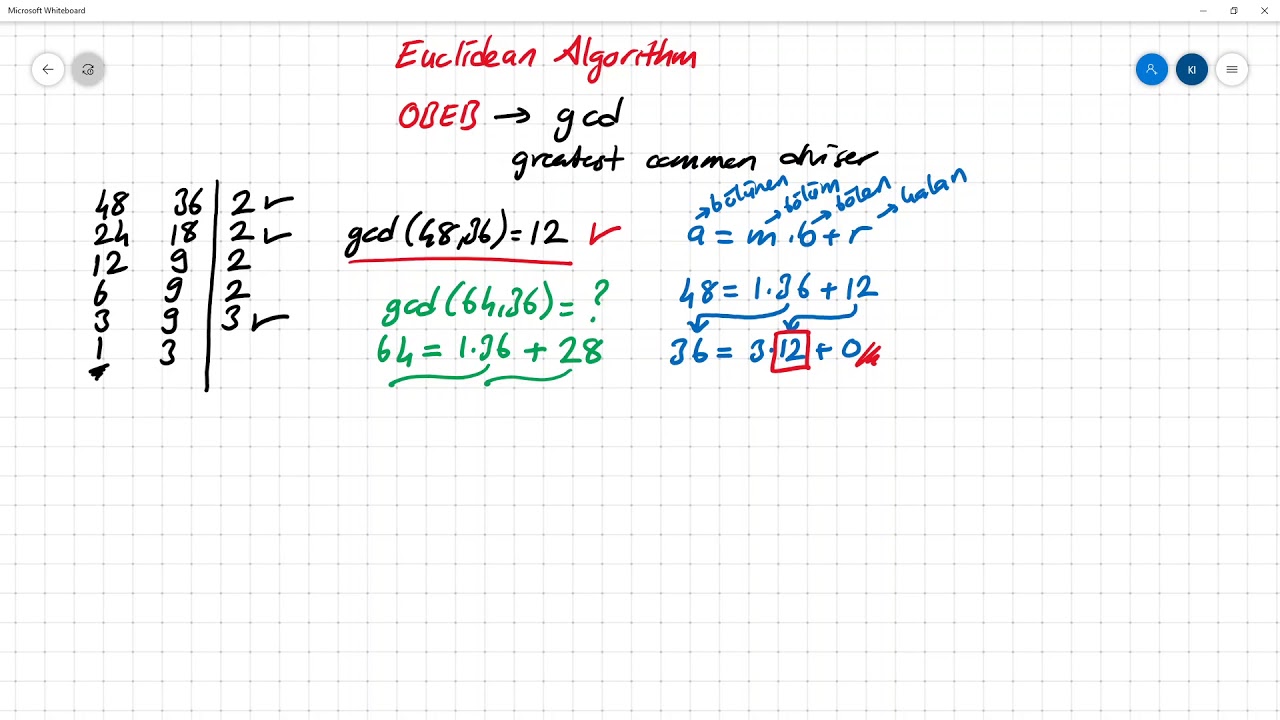 Microsoft Whiteboard
KI
Euclidean Algorithm
OBEB → gcd
greatest common diviser
48 36 | 2 ✓
24 18 | 2 ✓
12 9 | 2
6 9 | 2
3 9 | 3 ✓
1 3
gcd(48,36) = 12 ✓
gcd(64,36) = ?
64 = 1.36 + 28
→ bölünen → bölüm → bölen → kalan
a = m . b + r
48 = 1.36 + 12
36 = 3.12 + 0